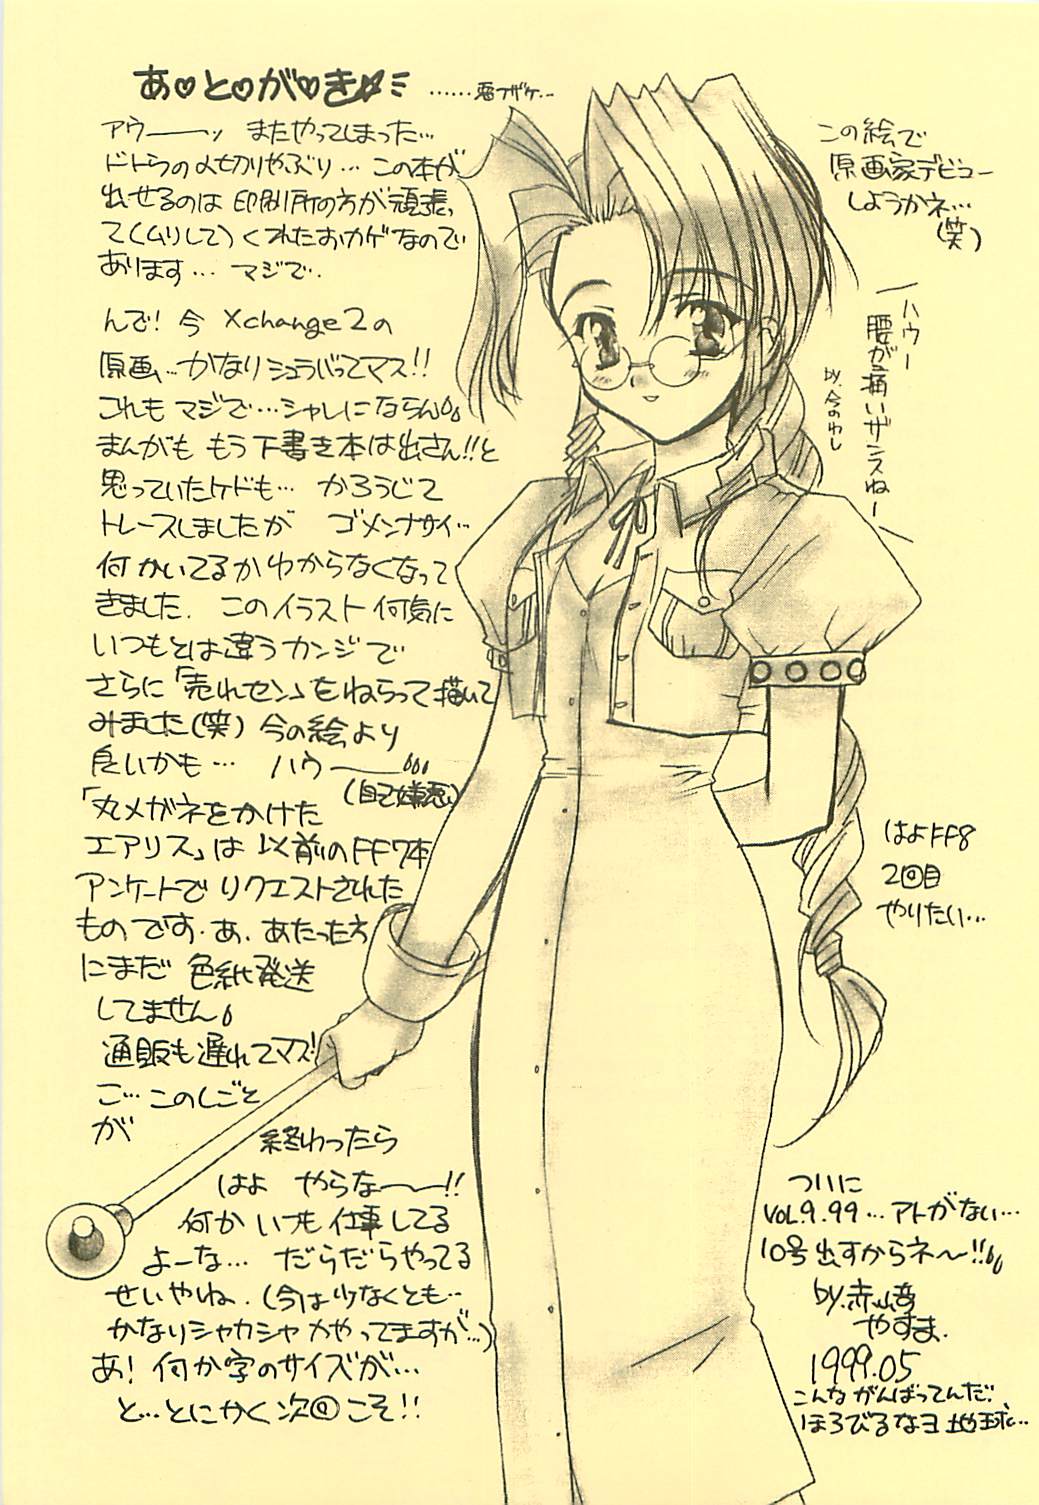 あ♡と♡が♡き☆
……悪フザケ…
アウーーッ またやってしまった…
ドトウの〆切りやぶり… この本が
出せるのは 印刷所の方が頑張っ
て(ムリして)くれたおカゲなので
あります… マジで.
んで! 今 Xchange2の
原画…かなりシュラバってマス!!
これも マジで…シャレにならん
まんがも もう下書き本は出さん!!と
思っていたケドも… かろうじて
トレースしましたが ゴメンナサイ…
何かいてるかわからなくなって
きました. このイラスト 何気に
いつもとは違うカンジで
さらに「売れセン」をねらって描いて
みました(笑) 今の絵より
良いかも… ハウーー
(自己嫌悪)
「丸メガネをかけた
エアリス」は 以前のFF7本
アンケートでリクエストされた
ものです. あ. あたった方
にまだ 色紙発送
してません
通販も遅れてマス!
ご… このしごと
が
終わったら
はよ やらな〜〜!!
何か いつも 仕事してる
よーな… だらだらやってる
せいやね. (今は少なくとも…
かなりシャカシャカやってますが…)
あ! 何か字のサイズが…
と…とにかく次回こそ!!
この絵で
原画家デビュー
しようかネ…
(笑)
ハウー
腰が痛いザンスねー
by.今のわし
はよFF8
2回目
やりたい…
ついに
VOL.9.99…アトがない…
10号出すからネ〜!!
by.赤﨑
やすま.
1999.05
こんながんばってんだ!
ほろびるなヨ 地球…